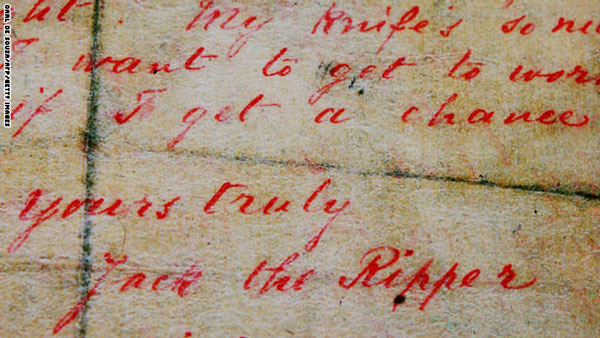 My knife's
I want to get to
if I get a chance
yours truly
Jack the Ripper
CARL DE SOUZA/AFP/GETTY IMAGES